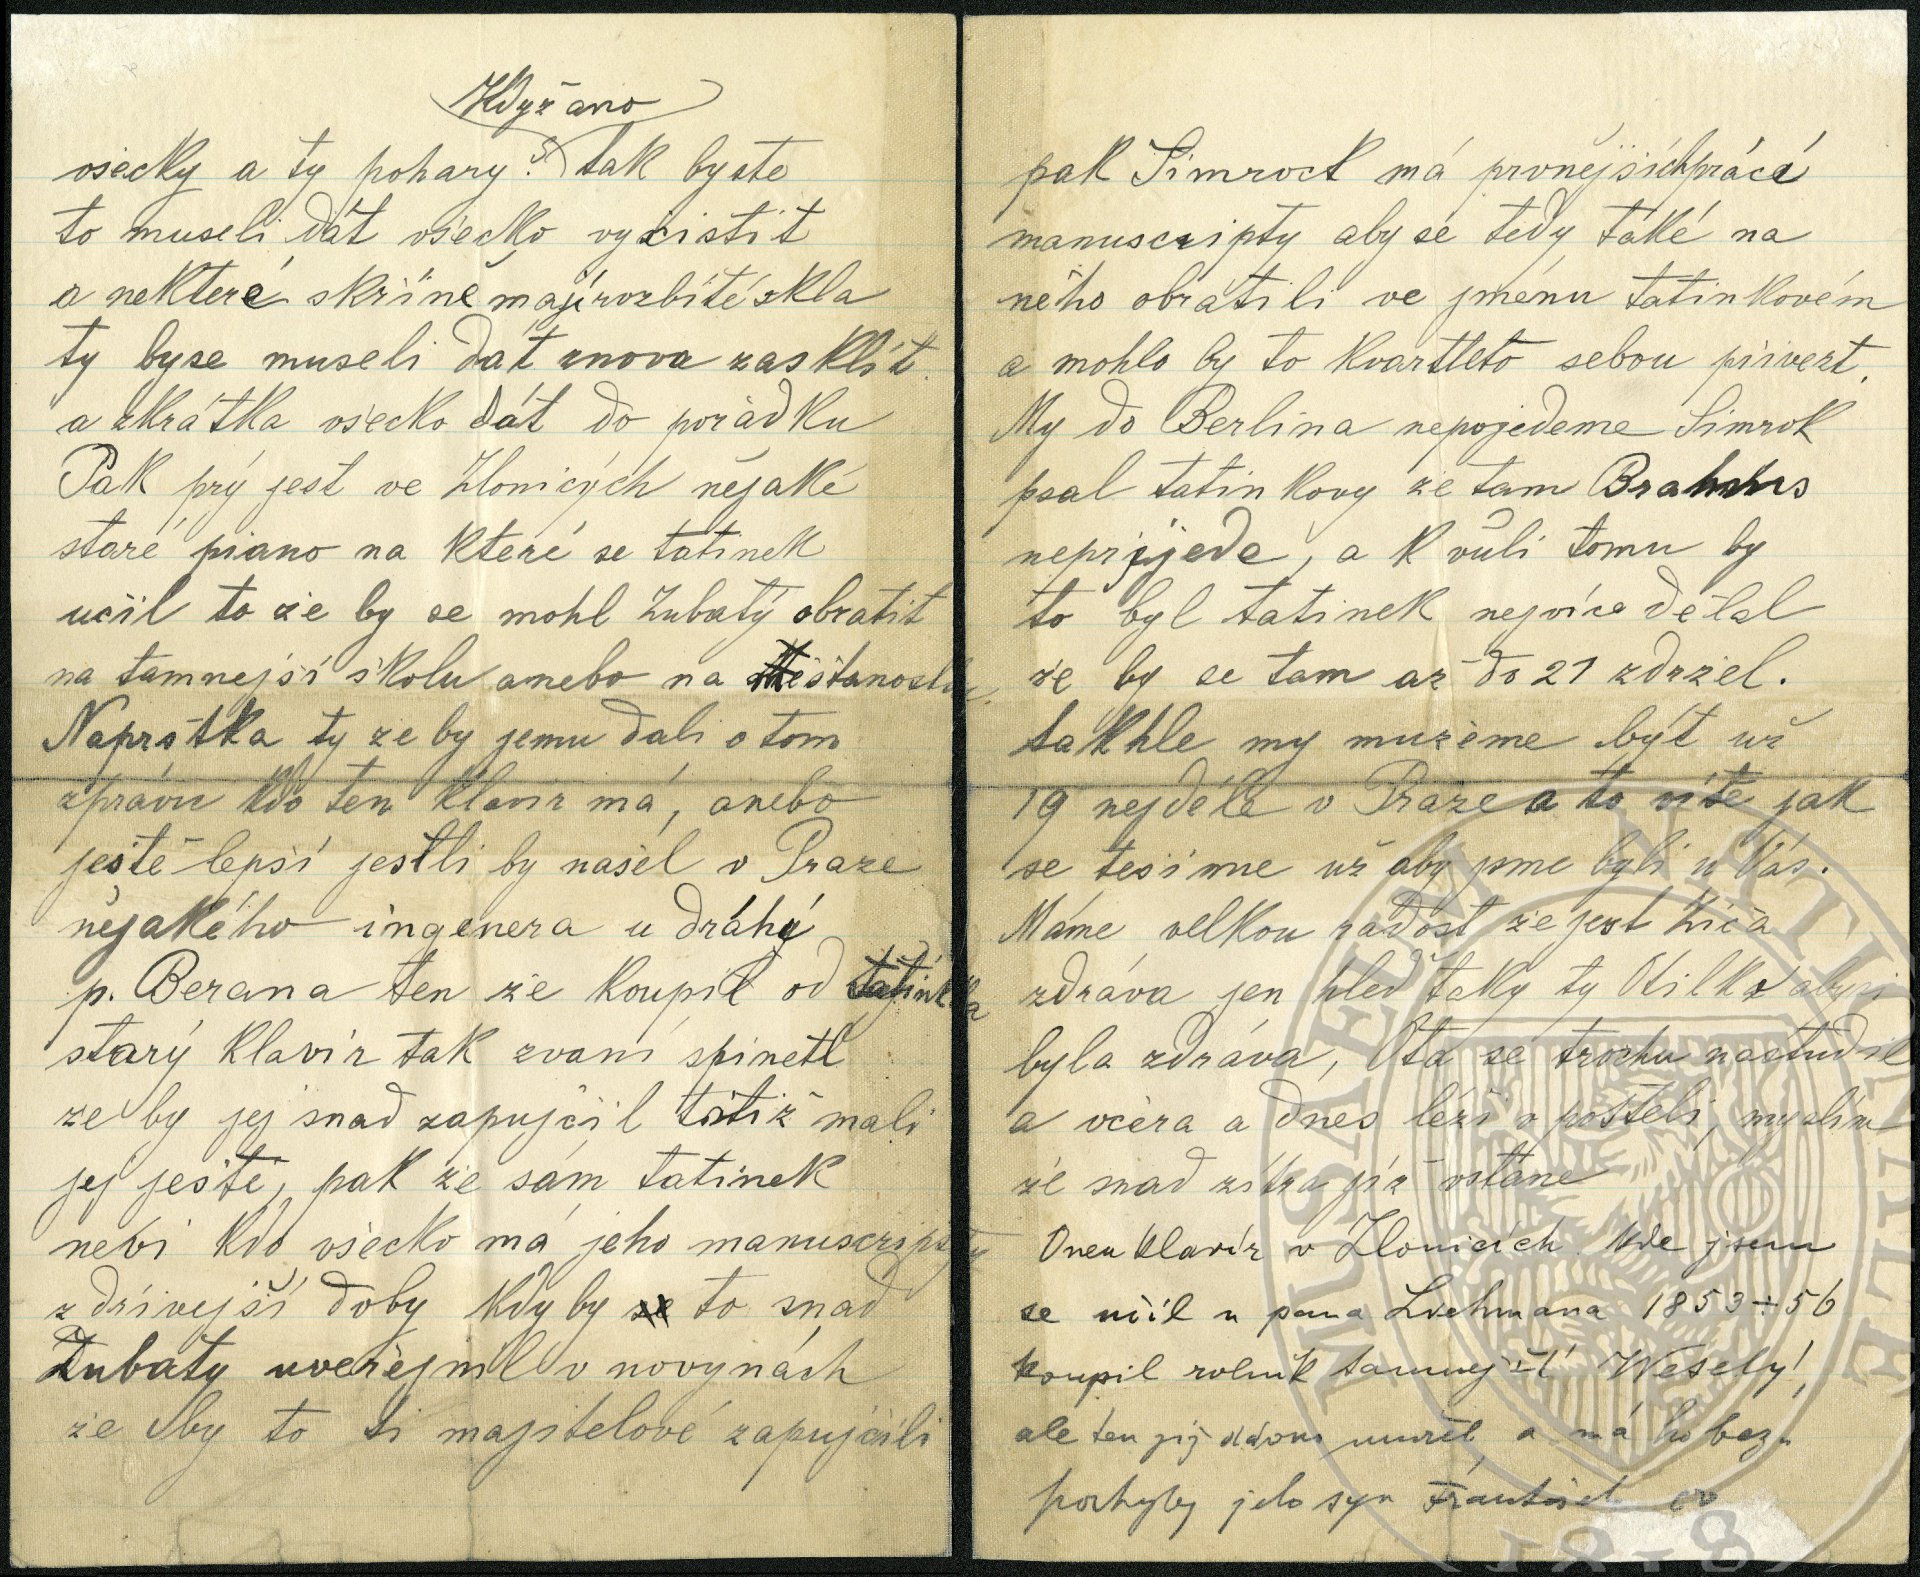 Když ano
všecky a ty pohary? tak byste
to museli dát všecko vyčistit
a nekteré skříně majú rozbité skla
ty byse museli dát znova zasklít.
a zkrátka všecko dát do pořádku
Pak prý jest ve Zlonicých nějaké
staré piano na které se tatinek
učil to že by se mohl Zubatý obratit
na tamnejší školu anebo na
Naprstka ty že by jemu dali o tom
zprávu kdo ten klavir má, anebo
ještě lepší jestli by našel v Praze
nějakého ingenera u dráhy
p. Berana ten že koupil od tatínka
starý klavír tak zvaní spinetl
že by jej snad zapujčil totiž mali
jej ještě, pak že sám tatinek
neví kdo všecko má jeho manuscripty
z dřívejší doby kdyby to snad
Zubaty uveřejnil v novynách
že by to ti majitelové zapujčili
pak Simrock má prvnějších prácí
manuscripty aby se tedy také na
ného obrátili ve jménu tatinkovém
a mohlo by to kvartleto sebou přivezt.
My do Berlina nepojedeme Simrok
psal tatinkovy že tam Brahms
neprijede, a k vůli tomu by
to byl tatinek nejvíce dělal
že by se tam až do 21 zdržel.
takhle my mužeme být už
19 nejdéle v Praze a to víte jak
se tešíme už aby jsme byli u Vás.
Máme velkou radost že jest Ziča
zdráva jen hleď taky ty Otilko abysi
byla zdráva, Ota se trochu nastudil
a včera a dnes leží v posteli, myslím
že snad zítra již vstane
Onen klavír v Zlonicích kde jsem
se učil u pana Liehmana 1853 ÷ 56
koupil rolník tamnejší Weselý,
ale ten jij dávno umřel, a má ho bez
pochyby jeho syn František
MUSAEUM NATIONALE
1818